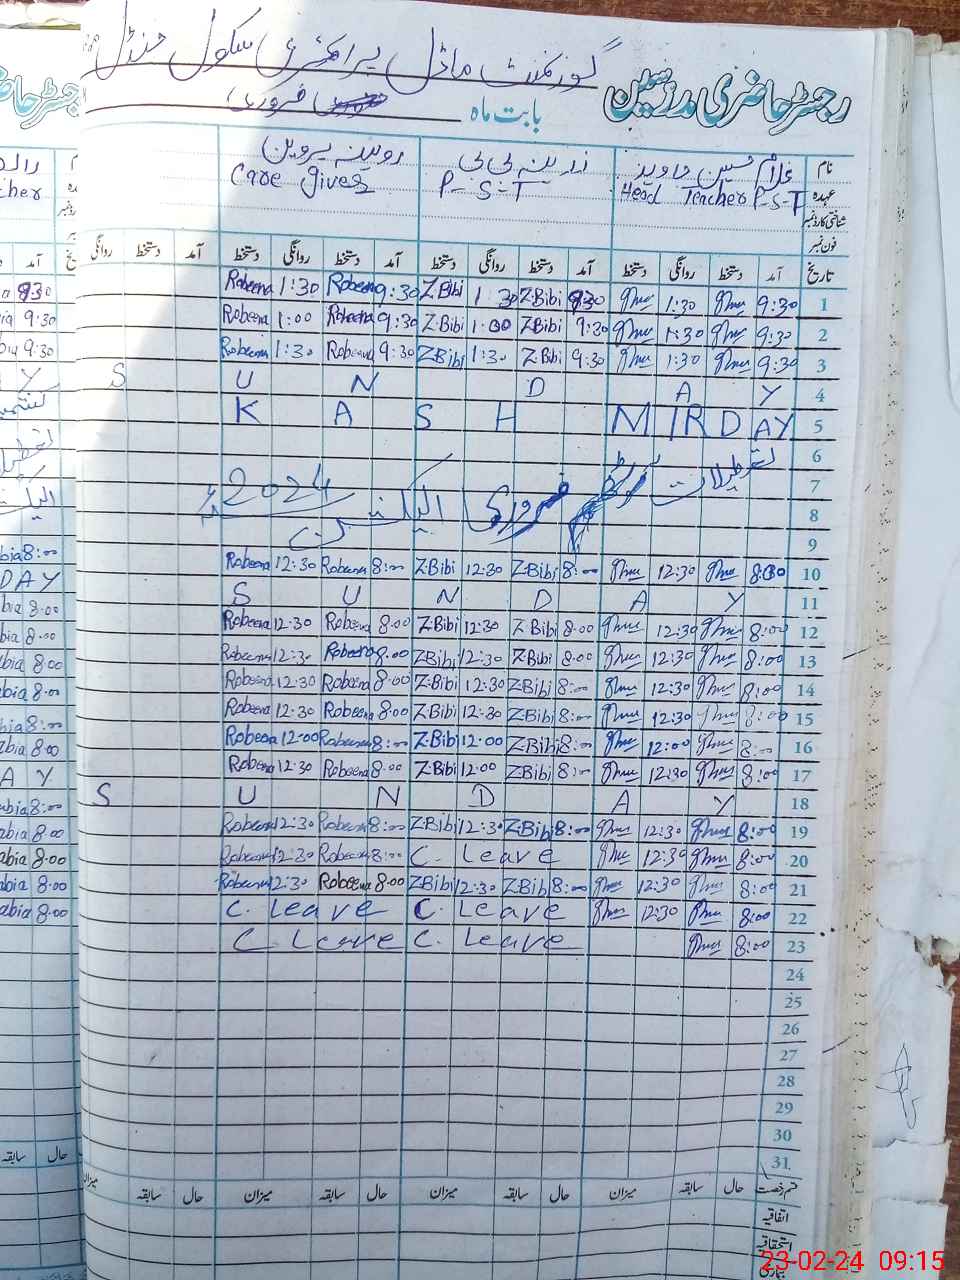 رجسٹر حاضری مدرسین گورنمنٹ ماڈل پرائمری سکول
بابت ماہ فروری
نام غلام حسین جاوید زرینہ بی بی روبینہ پروین
عہدہ Head Teacher P-S-T P-S-T Care giver
شناختی کارڈ نمبر
فون نمبر
تاریخ آمد دستخط روانگی دستخط آمد دستخط روانگی دستخط آمد دستخط روانگی دستخط آمد دستخط روانگی
Robeena 1:30 Robeena 9:30 Z.Bibi 1:30 Z.Bibi 9:30 1:30 9:30 1
Robeena 1:00 Robeena 9:30 Z.Bibi 1:00 Z.Bibi 9:30 1:30 9:30 2
Robeena 1:30 Robeena 9:30 Z.Bibi 1:30 Z.Bibi 9:30 1:30 9:30 3
S U N D A Y 4
K A S H M I R D AY 5
6
تعطیلات 7
فروری الیکشن 2024 8
9
Robeena 12:30 Robeena 8:00 Z.Bibi 12:30 Z.Bibi 8:00 12:30 8:00 10
S U N D A Y 11
Robeena 12:30 Robeena 8:00 Z.Bibi 12:30 Z.Bibi 8:00 12:30 8:00 12
Robeena 12:30 Robeena 8:00 Z.Bibi 12:30 Z.Bibi 8:00 12:30 8:00 13
Robeena 12:30 Robeena 8:00 Z.Bibi 12:30 Z.Bibi 8:00 12:30 8:00 14
Robeena 12:30 Robeena 8:00 Z.Bibi 12:30 Z.Bibi 8:00 12:30 8:00 15
Robeena 12:00 Robeena 8:00 Z.Bibi 12:00 Z.Bibi 8:00 12:00 8:00 16
Robeena 12:30 Robeena 8:00 Z.Bibi 12:00 Z.Bibi 8:00 12:30 8:00 17
S U N D A Y 18
Robeena 12:30 Robeena 8:00 Z.Bibi 12:30 Z.Bibi 8:00 12:30 8:00 19
Robeena 12:30 Robeena 8:00 C. Leave 12:30 8:00 20
Robeena 12:30 Robeena 8:00 Z.Bibi 12:30 Z.Bibi 8:00 12:30 8:00 21
C. Leave C. Leave 12:30 8:00 22
C. Leave C. Leave 8:00 23
24
25
26
27
28
29
30
31
قسم رخصت حال سابقہ میزان حال سابقہ میزان حال سابقہ میزان حال سابقہ میزان
اتفاقیہ
استحقاقیہ
23-02-24 09:15